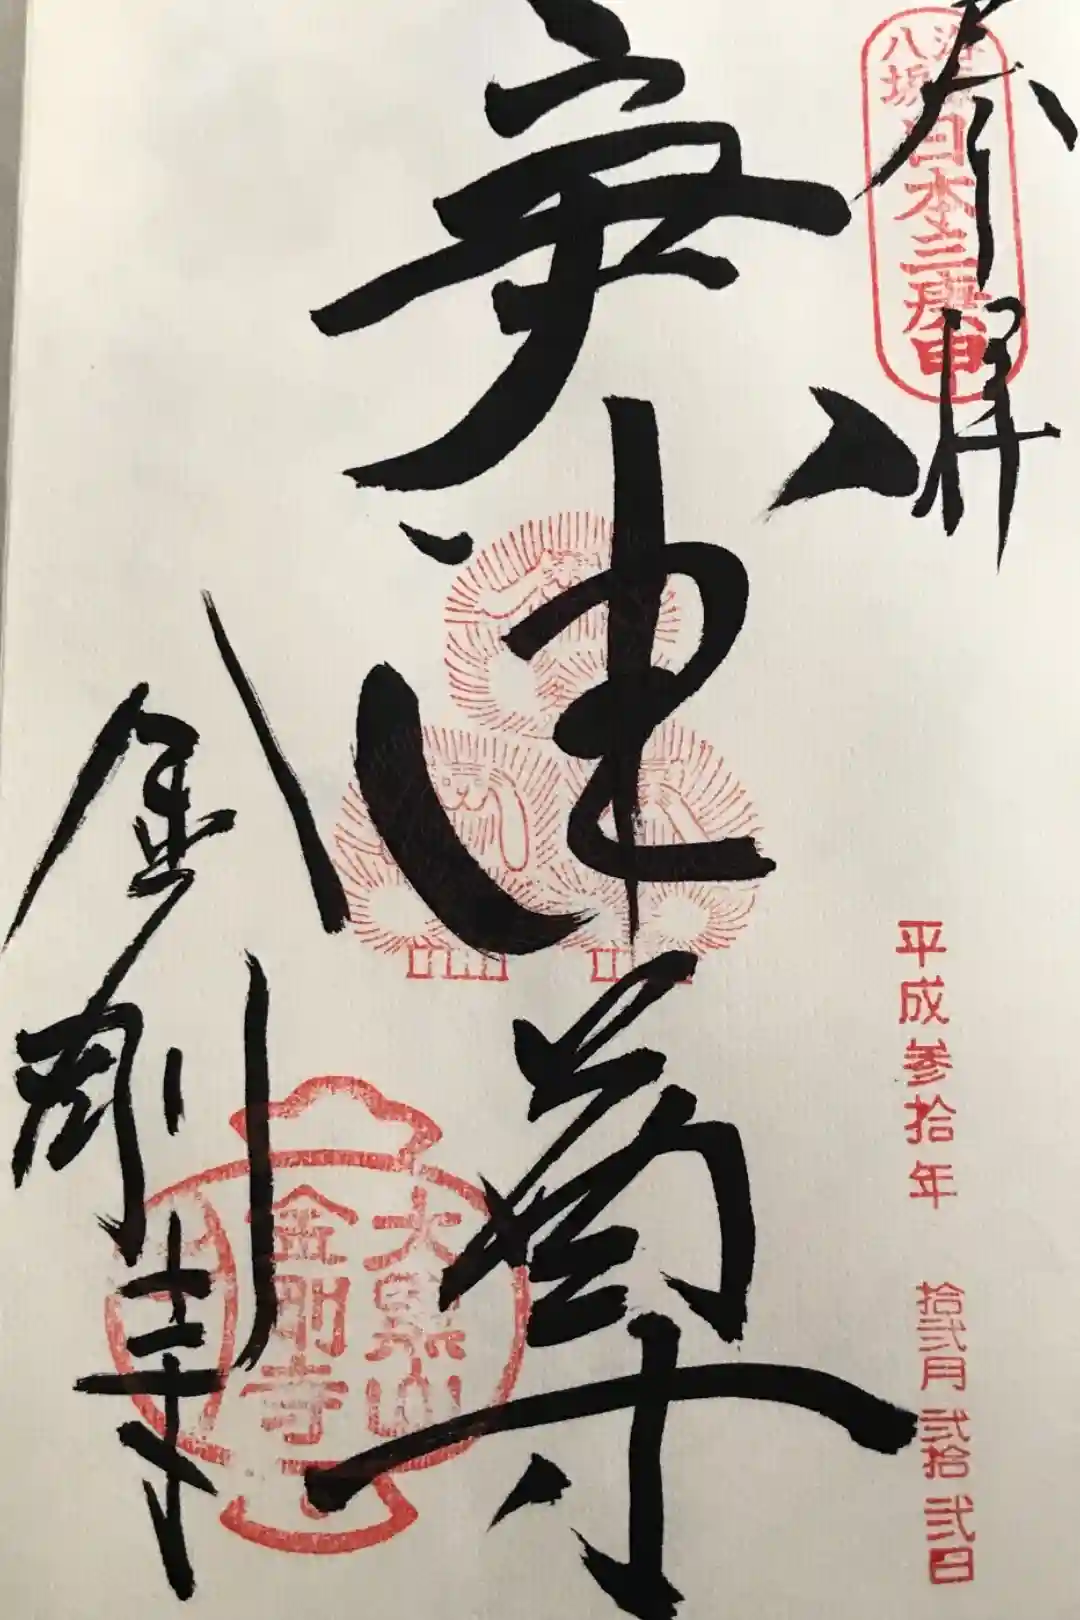 奉拝
八坂
日本三庚申
庚申尊
平成参拾年 拾弐月 弐拾弐日
金剛寺
大黒山
金剛寺